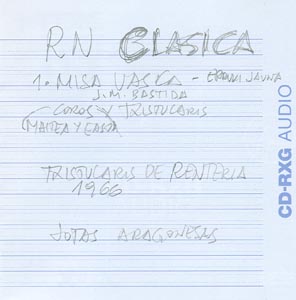 RN CLASICA
1. MISA VASCA - ERANNI JAUNA
J.M. BASTIDA
COROS Y TXISTULARIS
(MAITEA Y EASO)
TXISTULARIS DE RENTERIA
1966
JOTAS ARAGONESAS
CD-RXG AUDIO